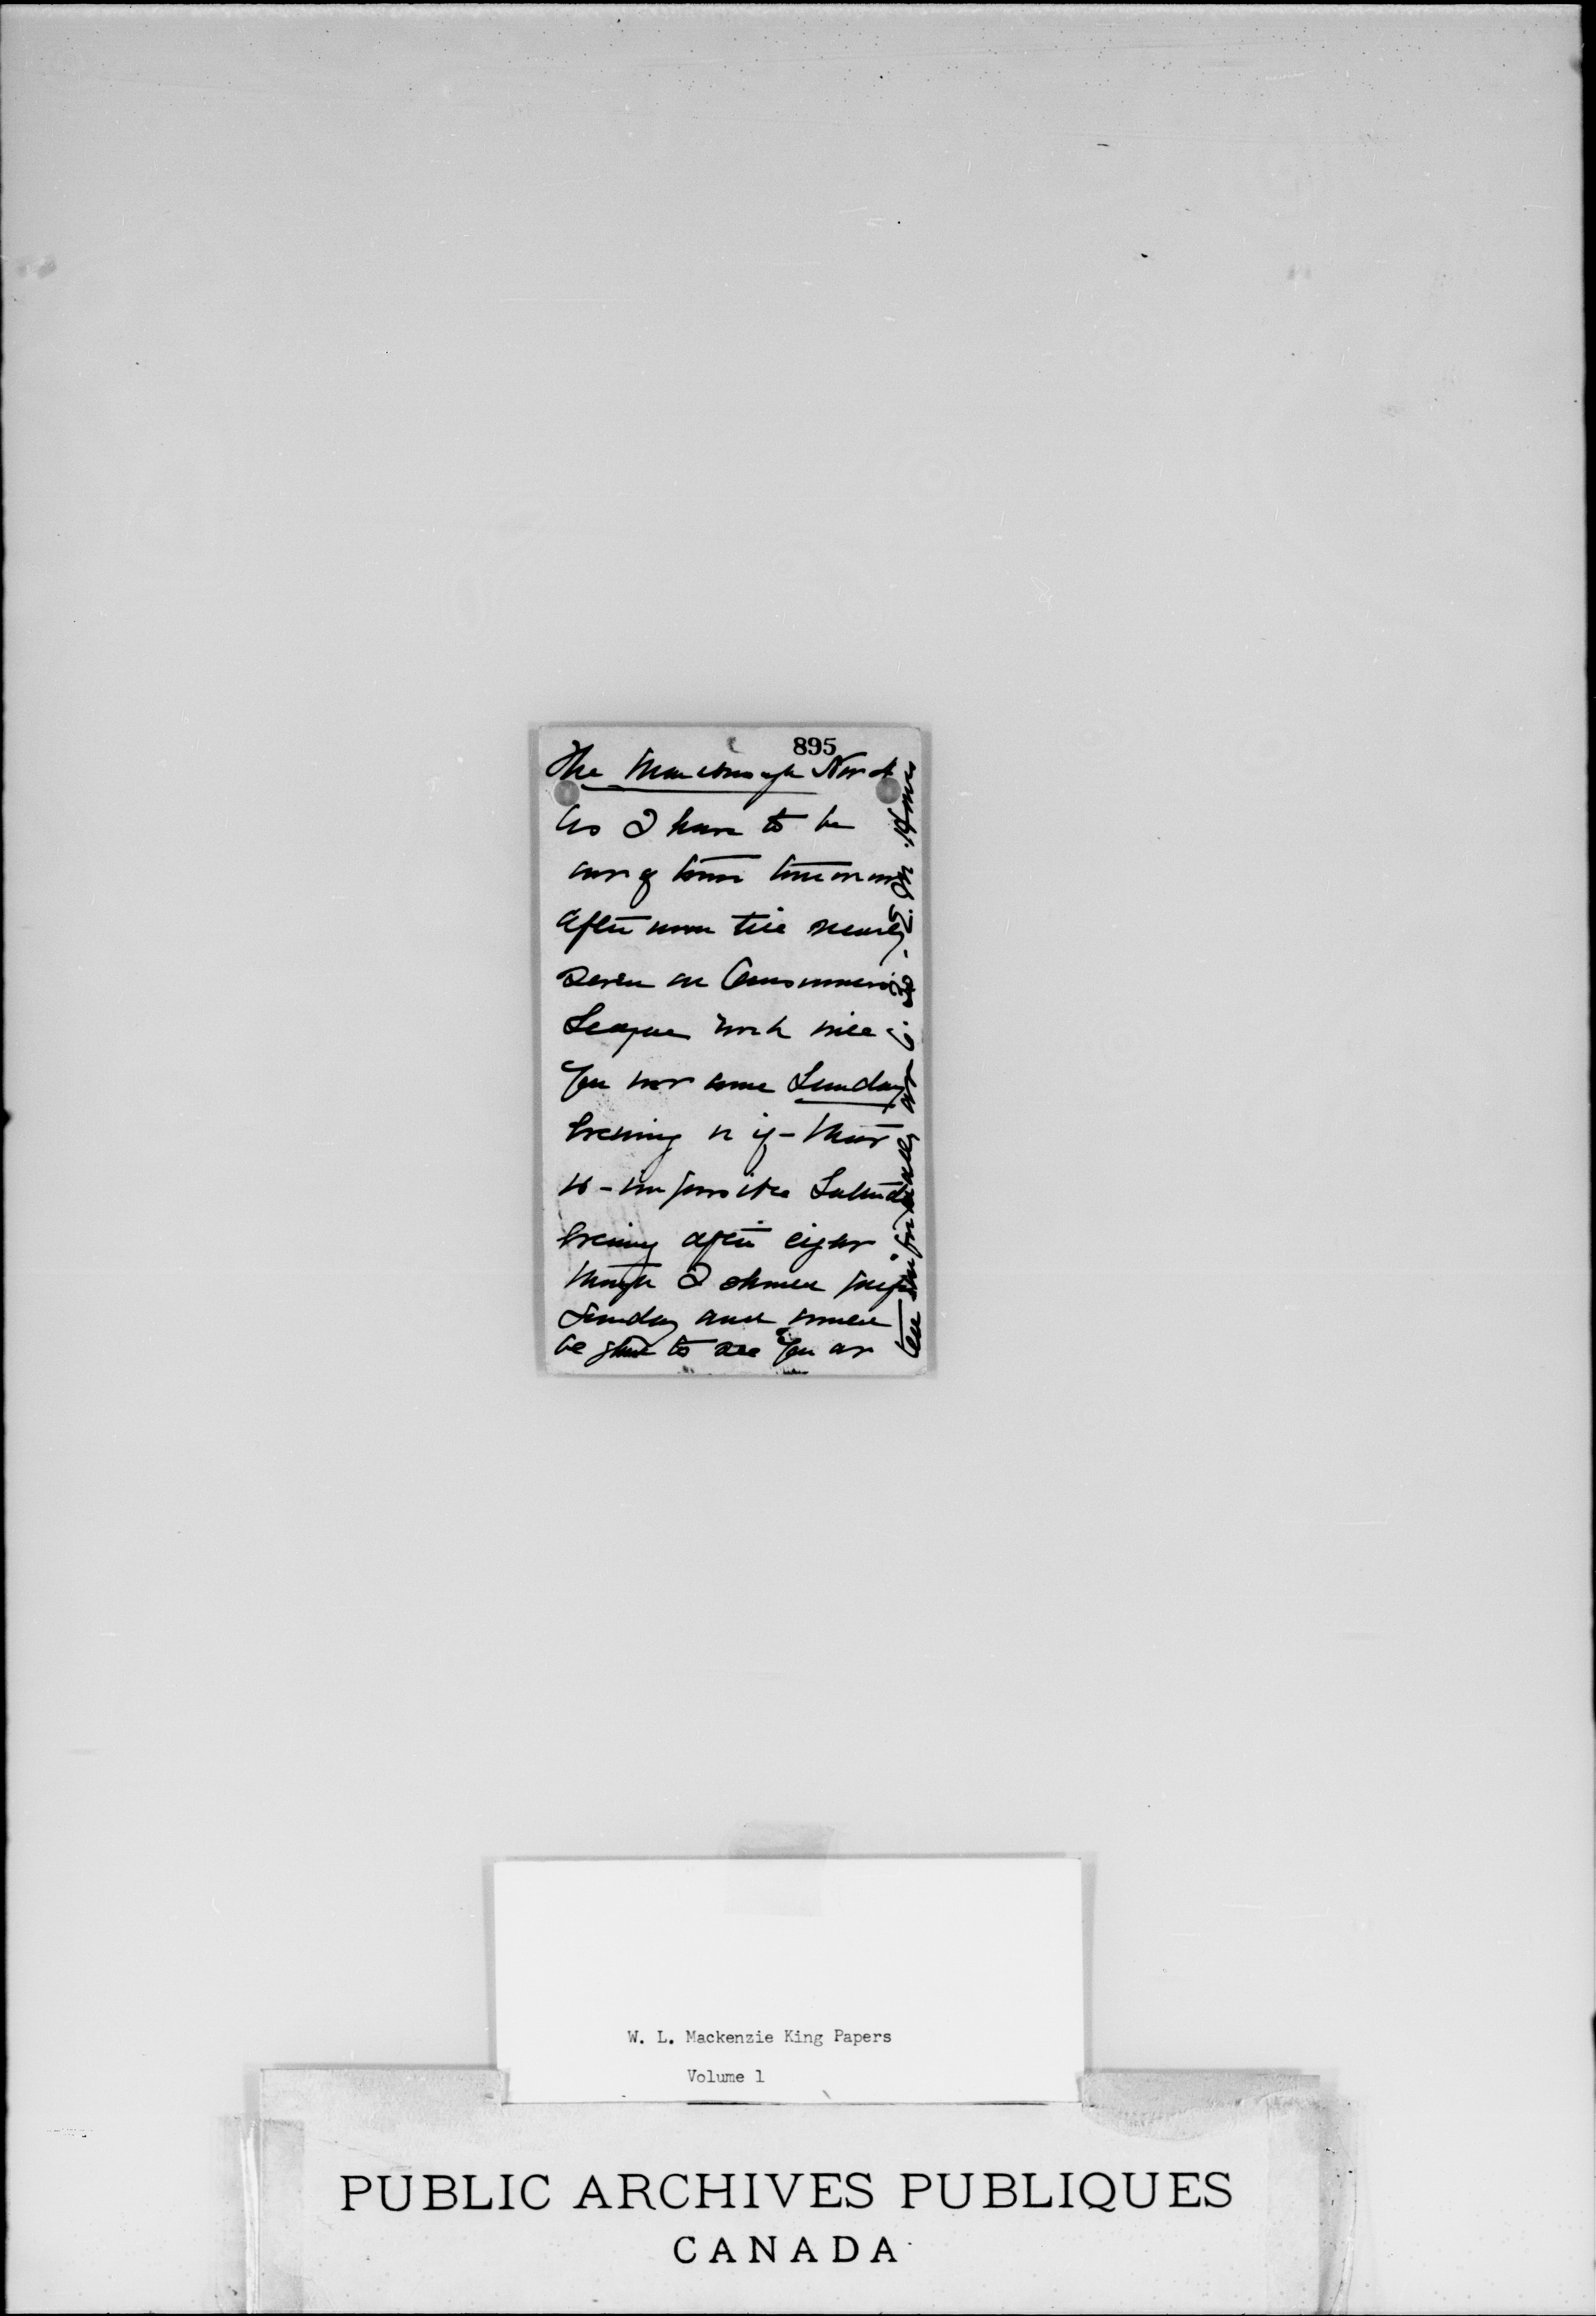 895
The Marlborough Nov
As I have to be
out of town tomorrow
afternoon till nearly
seven on Consumers'
League work will
you not come Sunday
evening or if that
is impossible Saturday
evening after eight
though I should prefer
Sunday and would
be glad to see you at
tea informally at 6.30.
W. L. Mackenzie King Papers
Volume 1
PUBLIC ARCHIVES PUBLIQUES
CANADA